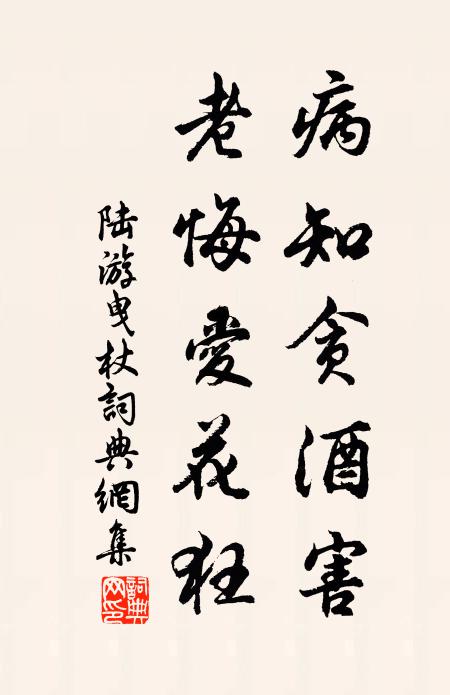 病知贪酒害
老悔愛花狂
陆游曳杖詞典網集
詞典网印